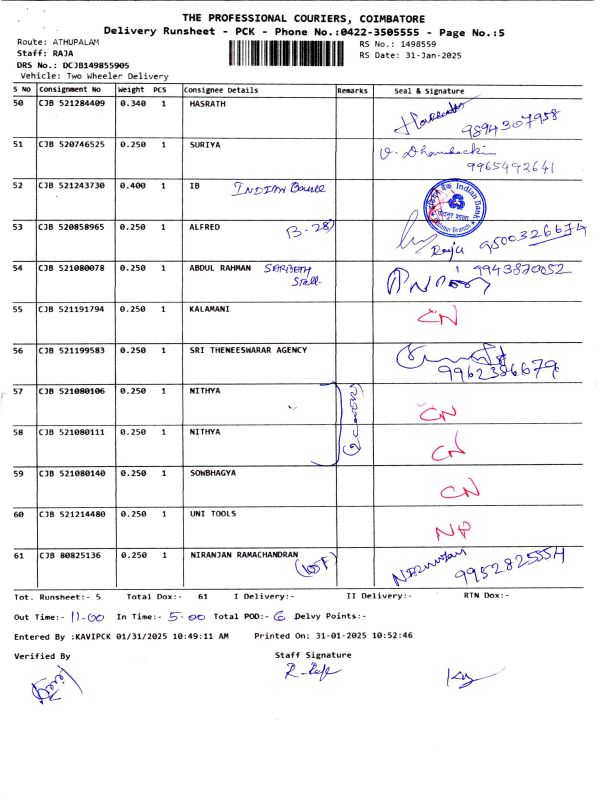 THE PROFESSIONAL COURIERS, COIMBATORE
Delivery Runsheet - PCK - Phone No.:0422-3505555 - Page No.:5
Route: ATHUPALAM
RS No.: 1498559
Staff: RAJA
RS Date: 31-Jan-2025
DRS No.: DCJB149855905
Vehicle: Two Wheeler Delivery
S No Consignment No Weight PCS Consignee Details Remarks Seal & Signature
50 CJB 521284409 0.340 1 HASRATH
9894307958
51 CJB 520746525 0.250 1 SURIYA
9965492641
52 CJB 521243730 0.400 1 IB INDIAN Bank
Indian Bank
53 CJB 520858965 0.250 1 ALFRED B-28
Raju 9500326674
54 CJB 521080078 0.250 1 ABDUL RAHMAN SARBATH Stall
9943870052
55 CJB 521191794 0.250 1 KALAMANI CN
56 CJB 521199583 0.250 1 SRI THENEESWARAR AGENCY
9962386679
57 CJB 521080106 0.250 1 NITHYA CN
58 CJB 521080111 0.250 1 NITHYA CN
59 CJB 521080140 0.250 1 SOWBHAGYA CN
60 CJB 521214480 0.250 1 UNI TOOLS NP
61 CJB 80825136 0.250 1 NIRANJAN RAMACHANDRAN
9952825554
Tot. Runsheet:- 5 Total Dox:- 61 I Delivery:- II Delivery:- RTN Dox:-
Out Time:- 11-00 In Time:- 5-00 Total POD:- 6 Delvy Points:-
Entered By :KAVIPCK 01/31/2025 10:49:11 AM Printed On: 31-01-2025 10:52:46
Verified By Staff Signature